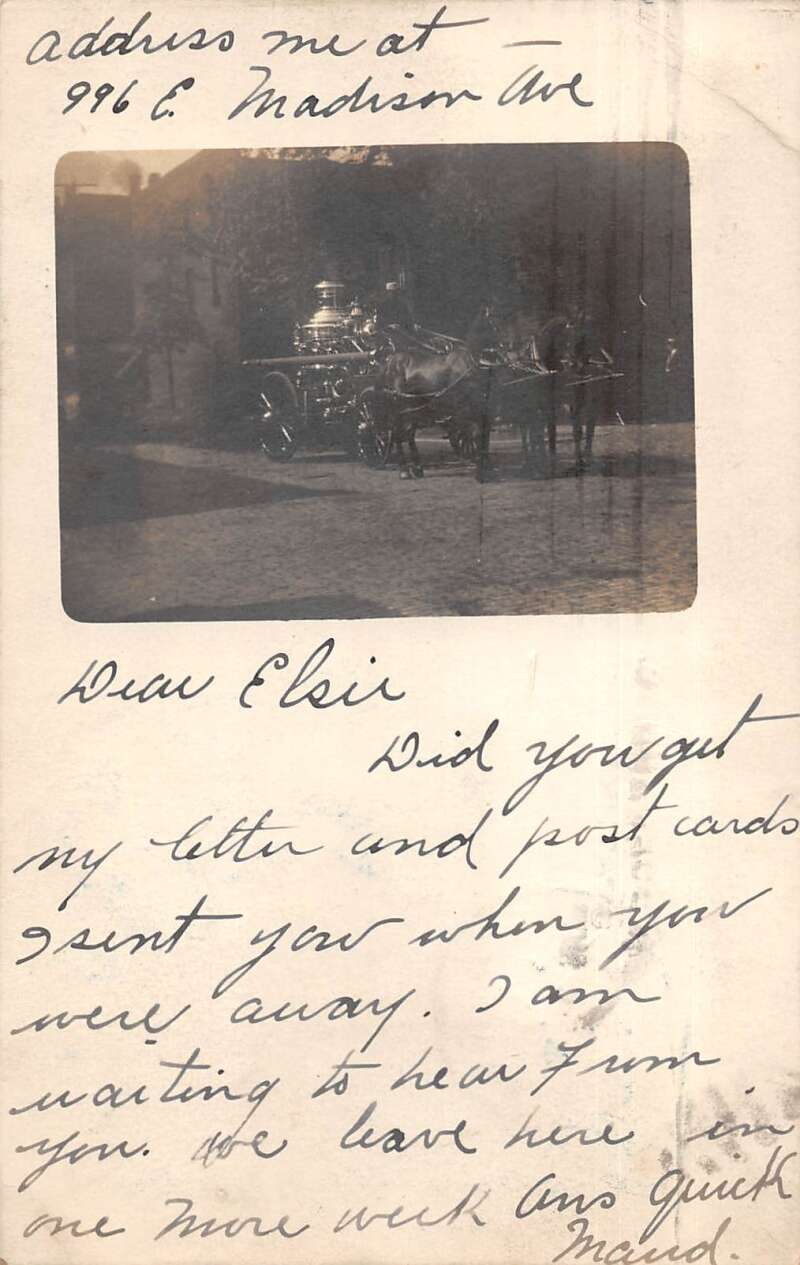 address me at
996 E. Madison Ave
Dear Elsie
Did you get
my letter and post cards
I sent you when you
were away. I am
waiting to hear From
you. We leave here in
one more week Ans quick
Maud.